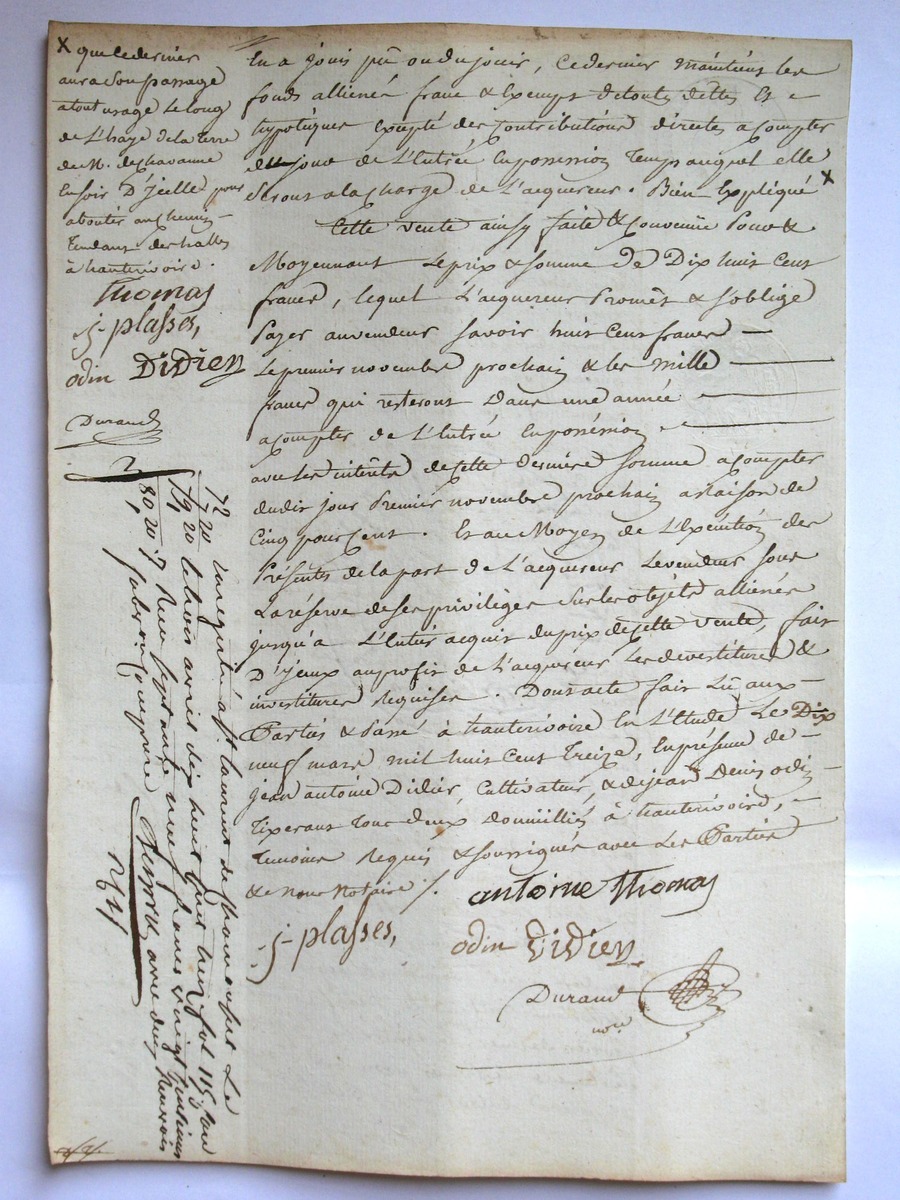 X que ce dernier
aura Son passage
a tout usage Le long
de L'haye de la terre
de M. de chavanne
En soir D'jcelle pour
aboutir au chemin
Tendant des halles
à hauterivoire.
Thomas
j plasses,
odin Didier
Durand
En a joüis pû ou du joüir, Ce dernier maintient les
fonds alliené franc & Exempt de toutes dettes Et
hypotèques Excepté des Contributions directes a Compter
du jour de L'Entrée En possession Temps auquel elle
Seront a la charge de L'acquereur. Bien Expliqué X
Cette vente ainsy faite & Convenüe Pour &
Moyennant Le prix & somme de Dix huit Cent
francs, lequel L'acquereur Promet & s'oblige
Payer au vendeur Savoir huit Cent francs
Le premier novembre prochain & les mille
francs qui resteront Dans une année
a Compter de L'Entrée En possession
avec les intérêts de Cette derniere somme a Compter
dudit jour Premier novembre prochain a Raison de
Cinq pour Cent. Et au Moyen de L'Exécution des
Présentes de la part de L'acquereur Le vendeur sous
La réserve de ses privilèges Sur les objets allienés
jusqu'a L'Entier acquit du prix de Cette vente, fait
D'jceux au profit de L'acquereur Les devestitures &
investitures Requises. Dont acte fait Lû aux
Parties & Passé à hauterivoire En L'Etude Le Dix
neuf mars mil huit Cent Treize, En présence de
jean antoine Didier Cultivateur, & de jean Denis odin
Tixerant Tous deux Domiciliés à hauterivoire,
Temoins Requis & soussignés avec Les Parties
& nous Notaire ./.
antoine Thomas
j plasses,
odin Didier
Durand
nore
2
72
7 20
79 20
80 20
Enregistré a St laurent de chamousset Le
trois avril dix huit cent treize fol 115
Reçu Septante neuf francs vingt Centimes